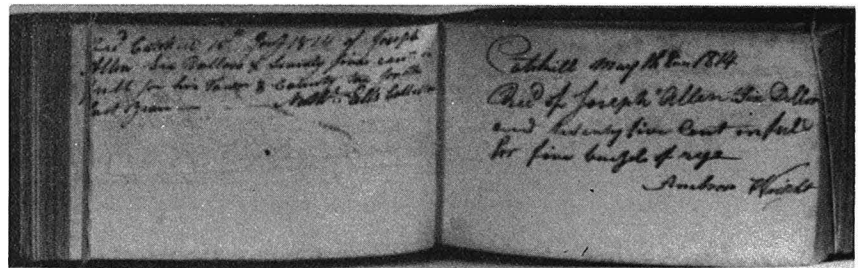 Recd Catskill 15th Jany 1814 of Joseph
Allen Six Dollars & Seventy five cents in
full for his Town & County tax for the
last year Nathl Ells Collector
Catskill May 18 1814
Recd of Joseph Allen Six Dollars
and twenty five Cent in full
for five bushels of rye
Ambros Wright